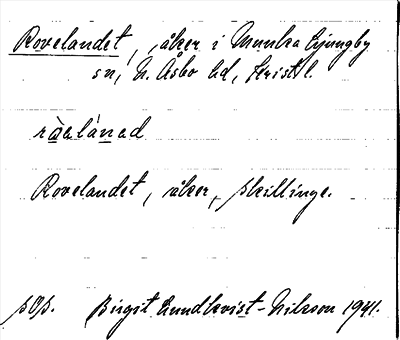 Rovelandet, åker i Munka Ljungby
sn, N. Åsbo hd, Krist. l.
Rovelandet, åker, Skillinge.
sOs. Birgit Lundkvist-Nilsson 1941.